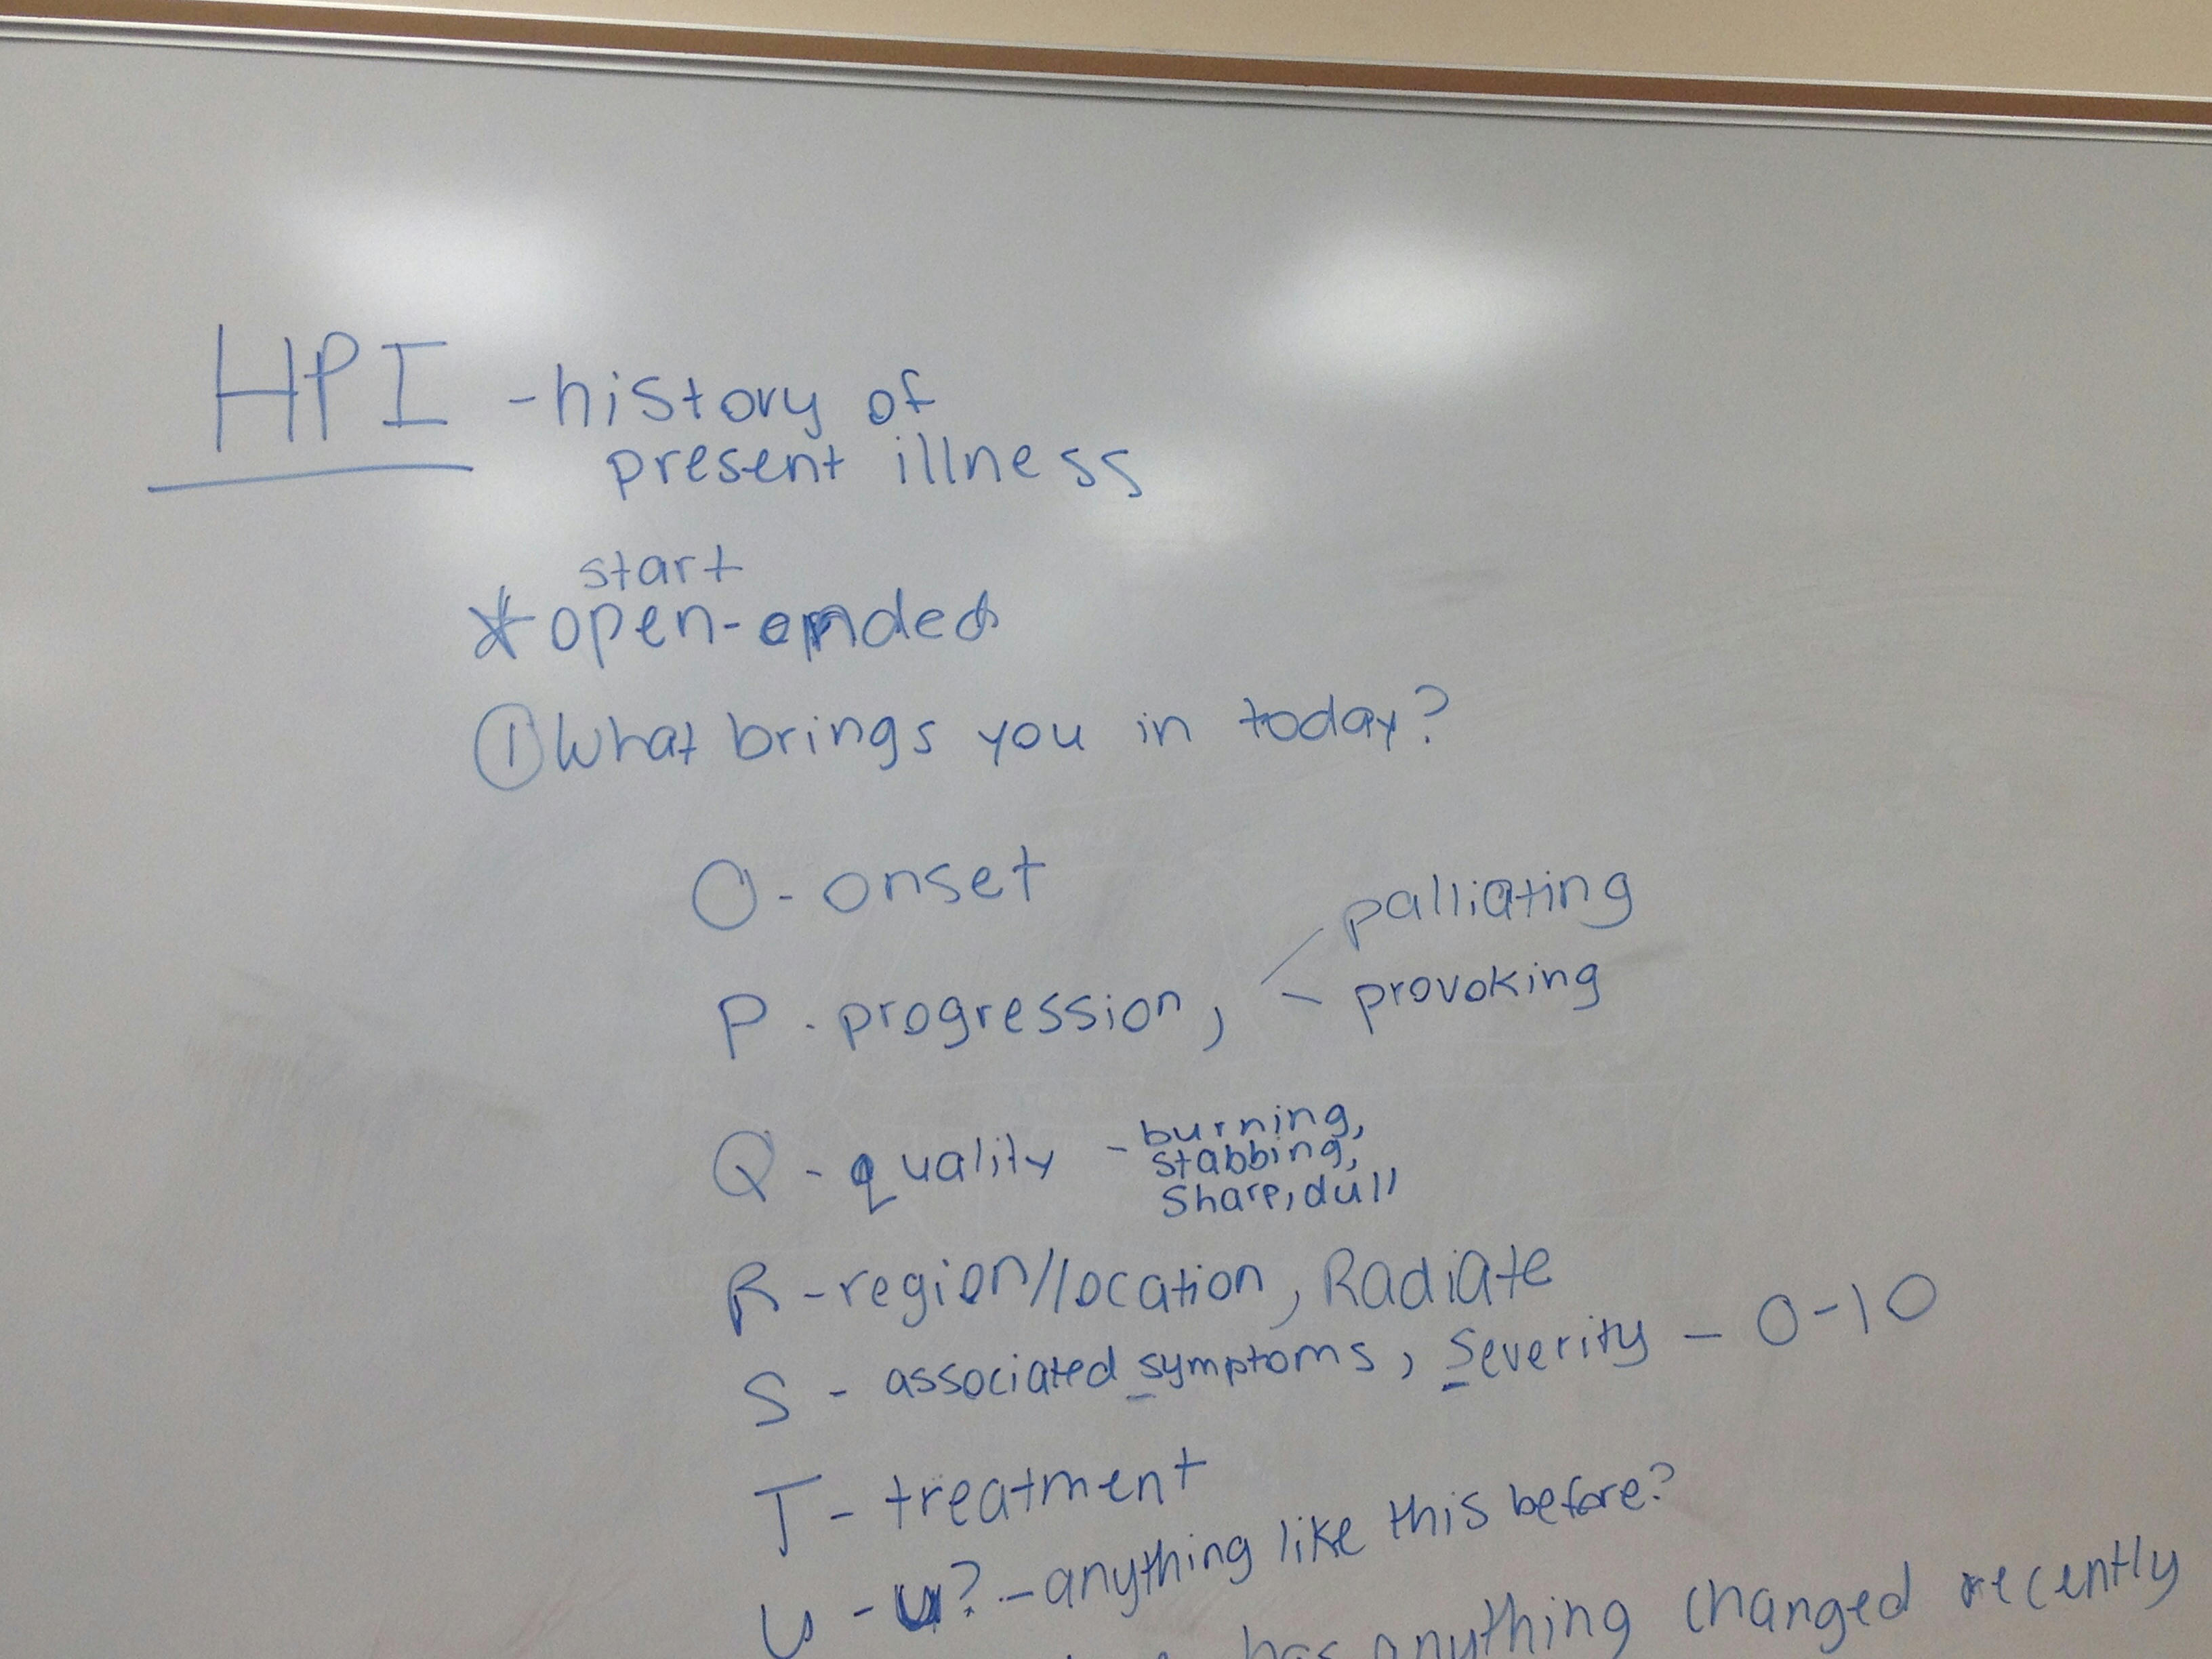 HPI - history of
present illness
start
* open-ended
① What brings you in today?
O - onset
P - progression, palliating
provoking
Q - quality - burning,
stabbing,
Sharp, dull
R - region/location, Radiate
S - associated symptoms, Severity - 0-10
T - treatment
U - u? - anything like this before?
has anything changed recently